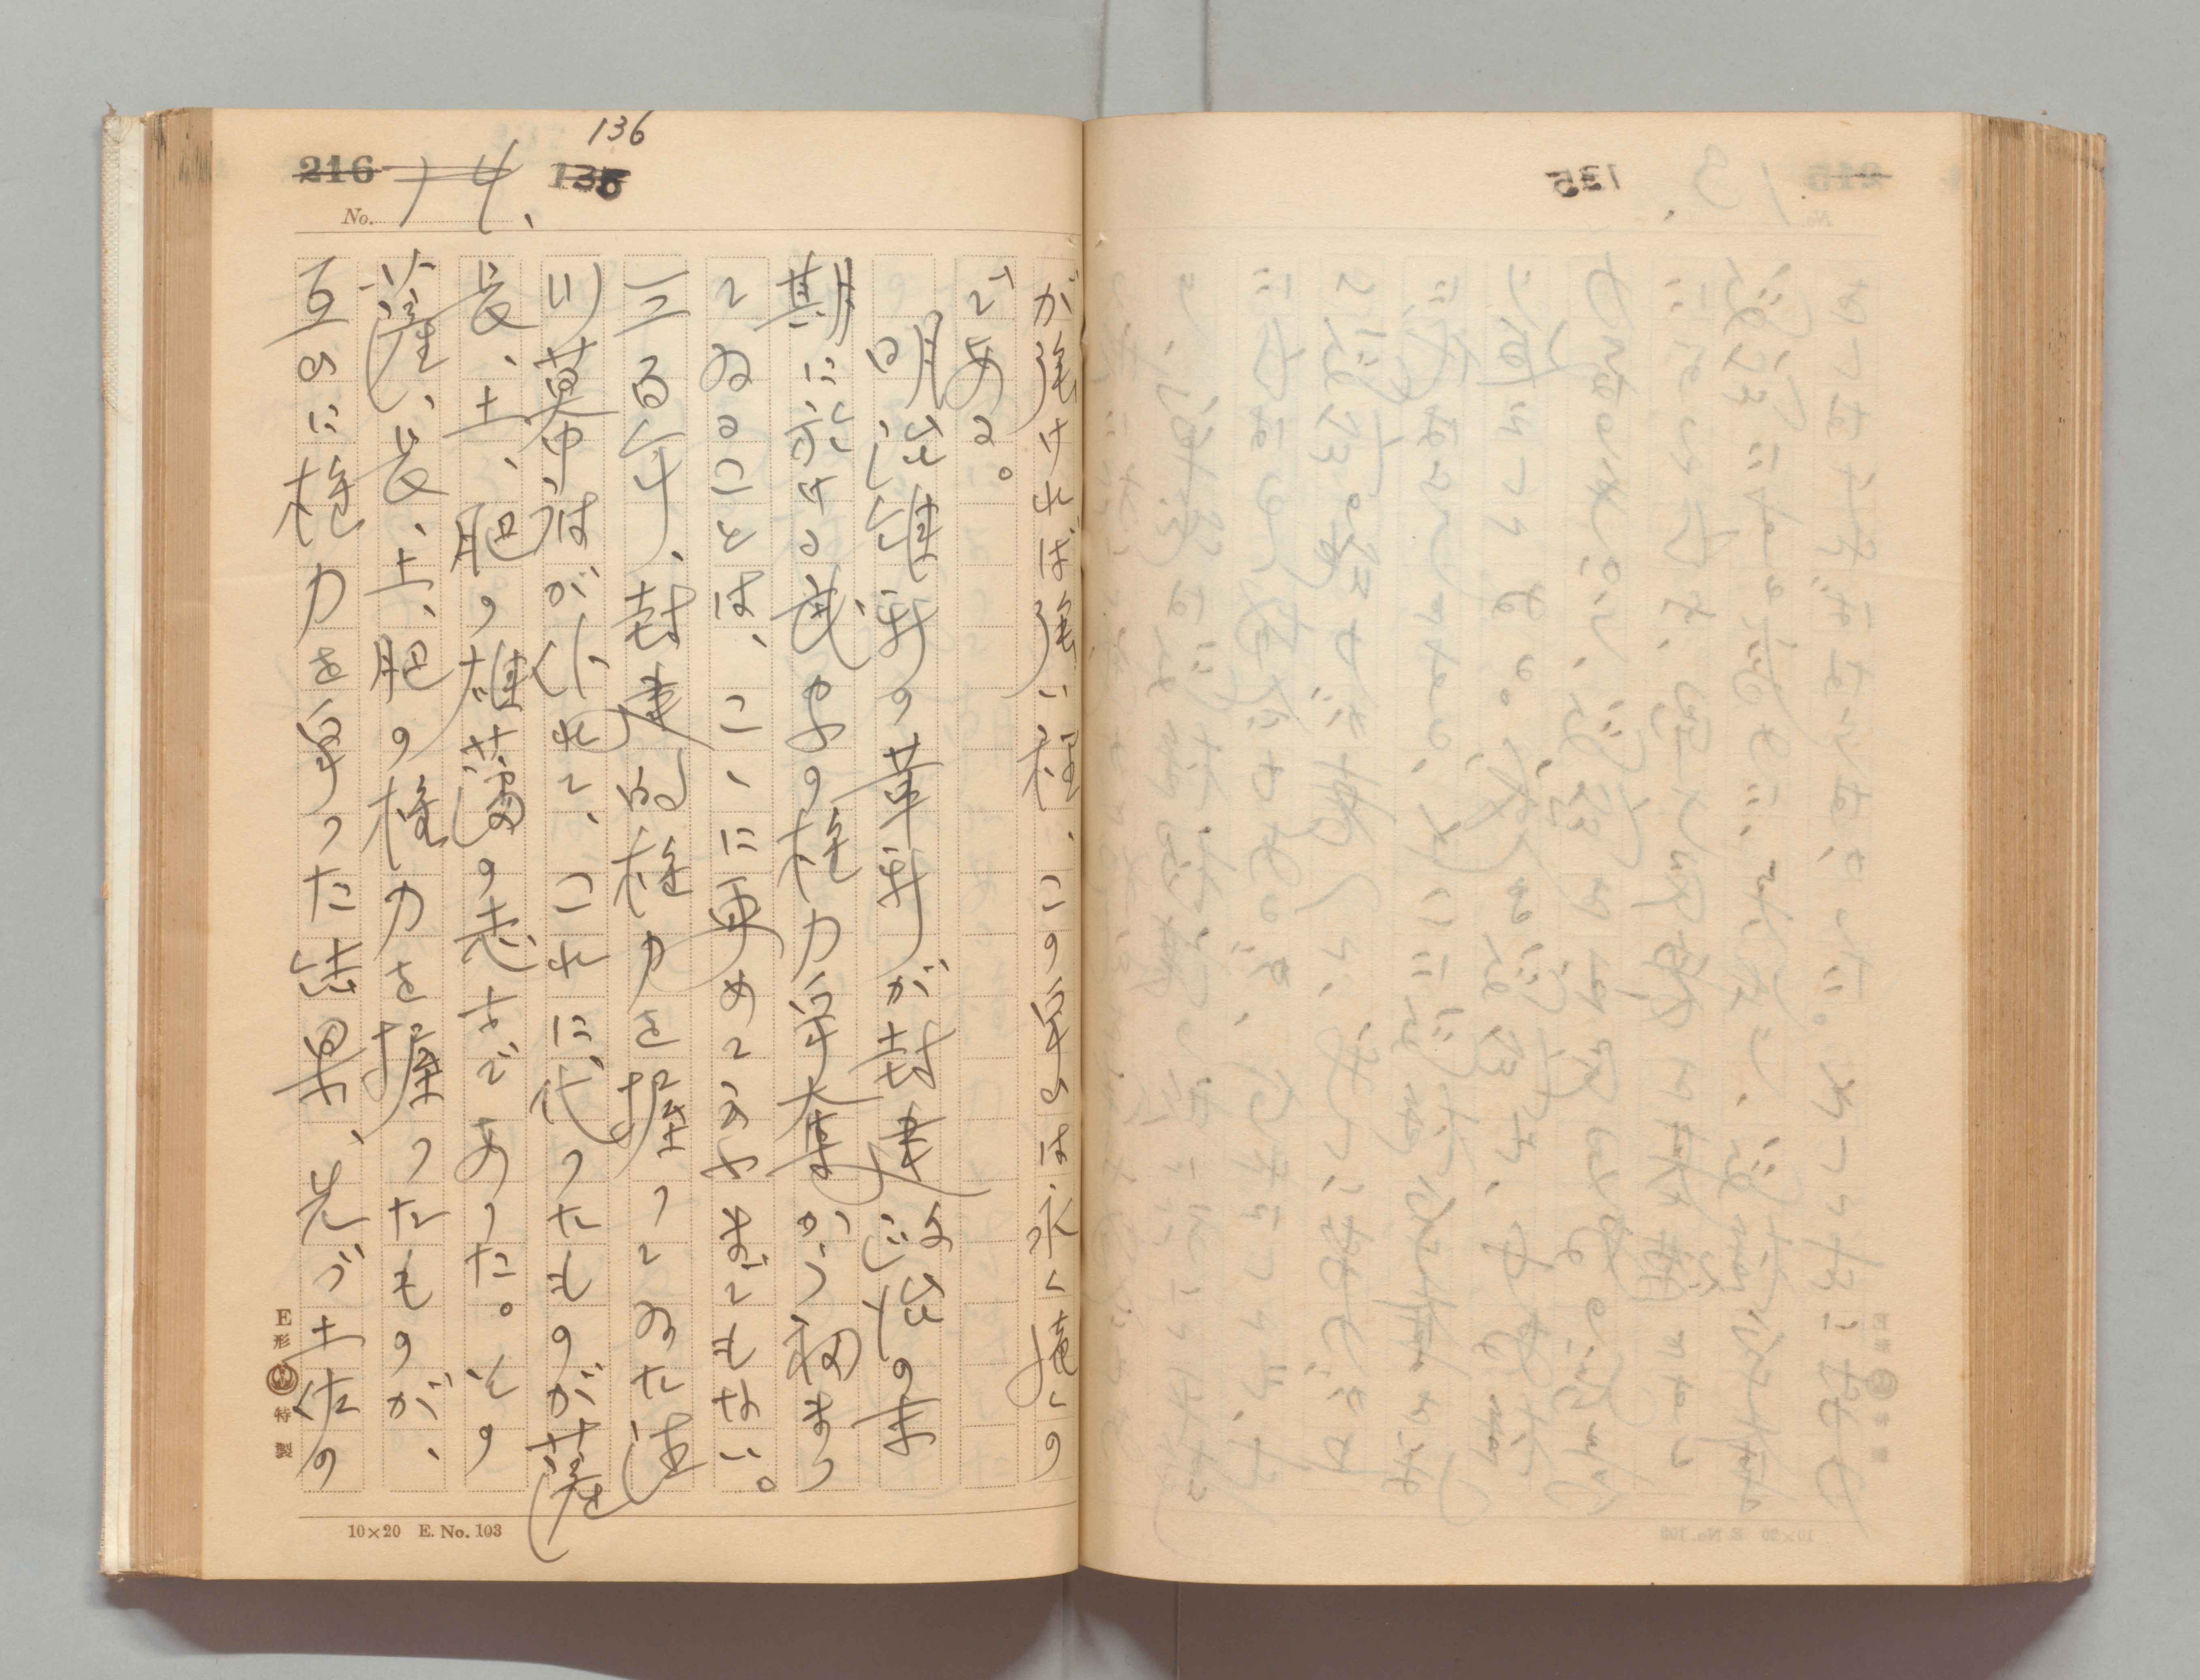 136
216 14、 135
No.
が強ければ強い程、この争ひは永く続くの
である。
明治維新の革新が封建政治の末
期に於ける武家の権力争奪から初まつ
てゐることは、こゝに更めて云ふまでもない。
三百年、封建的権力を握つてゐた徳
川幕府が仆れて、これに代つたものが薩
長、土、肥の雄藩の志士であつた。その
薩、長、土、肥の権力を握つたものが、
互ひに権力を争つた結果、先づ土佐の
E形 特製
10×20 E. No. 103